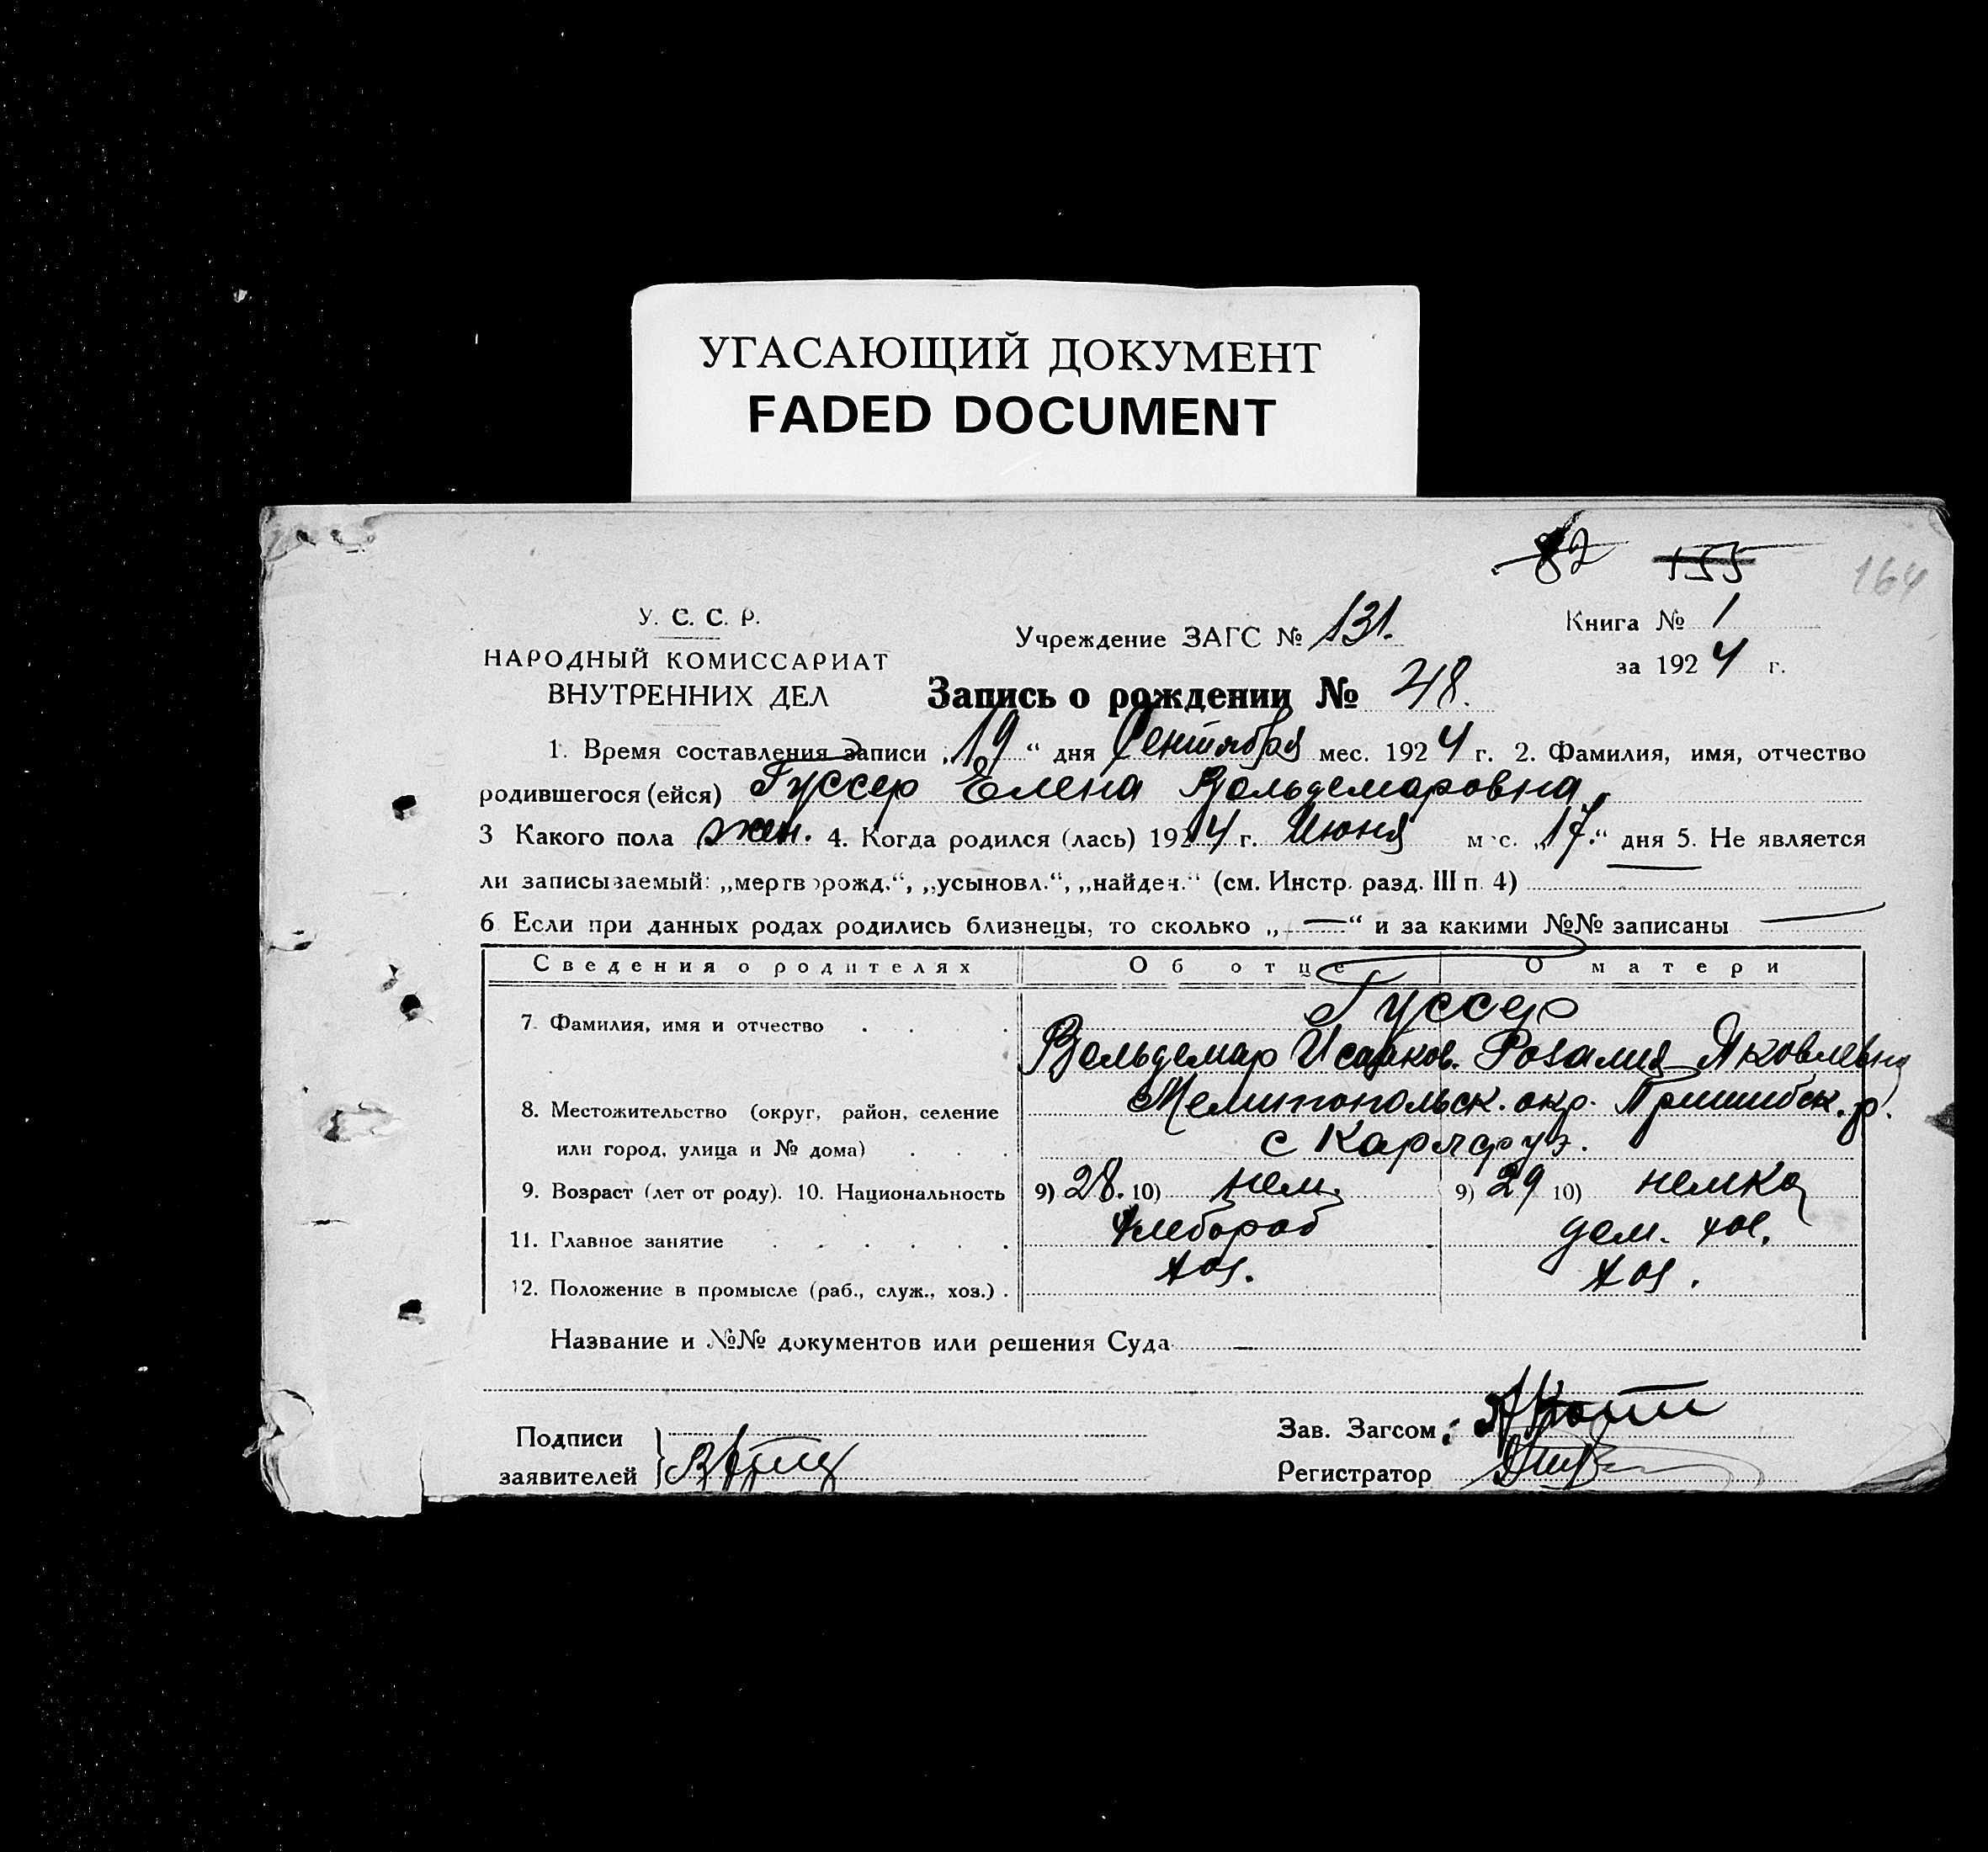 УГАСАЮЩИЙ ДОКУМЕНТ
FADED DOCUMENT
82 155 164
У. С. С. Р.
НАРОДНЫЙ КОМИССАРИАТ
ВНУТРЕННИХ ДЕЛ
Учреждение ЗАГС № 131.
Книга № 1
за 1924 г.
Запись о рождении № 48.
1. Время составления записи „19“ дня Сентября мес. 1924 г. 2. Фамилия, имя, отчество
родившегося (ейся) Гуссер Елена Вольдемаровна.
3 Какого пола жен. 4. Когда родился (лась) 1924 г. Июня мес. „17.“ дня 5. Не является
ли записываемый: „мертворожд.“, „усыновл.“, „найден.“ (см. Инстр. разд. III п. 4)
6 Если при данных родах родились близнецы, то сколько „—“ и за какими №№ записаны —
Сведения о родителях Об отце О матери
7. Фамилия, имя и отчество Гуссер
Вольдемар Исааков. Розалия Яковлевна
8. Местожительство (округ, район, селение Мелитопольск. окр. Пришибск. р.
или город, улица и № дома) с Карлсруэ.
9. Возраст (лет от роду). 10. Национальность 9) 28. 10) нем. 9) 29 10) немка
11. Главное занятие хлебороб дом. хоз.
12. Положение в промысле (раб., служ., хоз.) хоз. хоз.
Название и №№ документов или решения Суда —
Подписи
заявителей
Зав. Загсом:
Регистратор